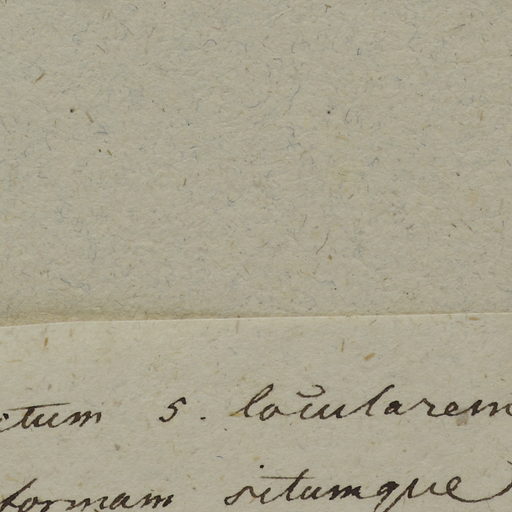 ctum s. locularem
formam situmque